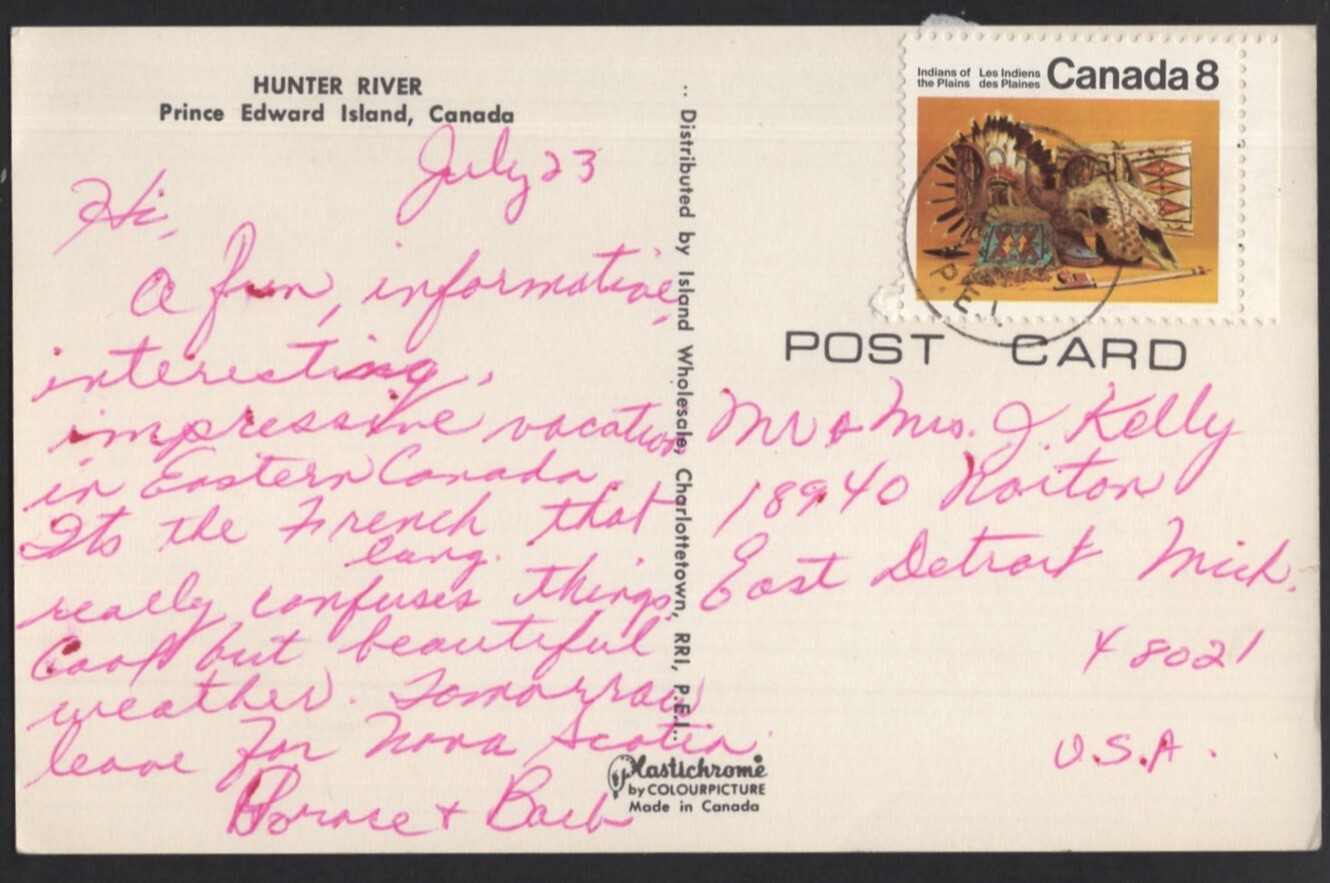 HUNTER RIVER
Prince Edward Island, Canada
July 23
Hi,
A fun, informative,
interesting,
impressive vacation
in Eastern Canada.
Its the French that
lang.
really confuses things.
Cool but beautiful
weather. Tomorrow
leave for Nova Scotia.
+ Barb
.. Distributed by Island Wholesale, Charlottetown, RR1, P.E.I..
Plastichrome
by COLOURPICTURE
Made in Canada
Indians of Les Indiens Canada 8
the Plains des Plaines
P.E.I.
POST CARD
Mr & Mrs. J. Kelly
18940
East Detroit Mich.
48021
U.S.A.